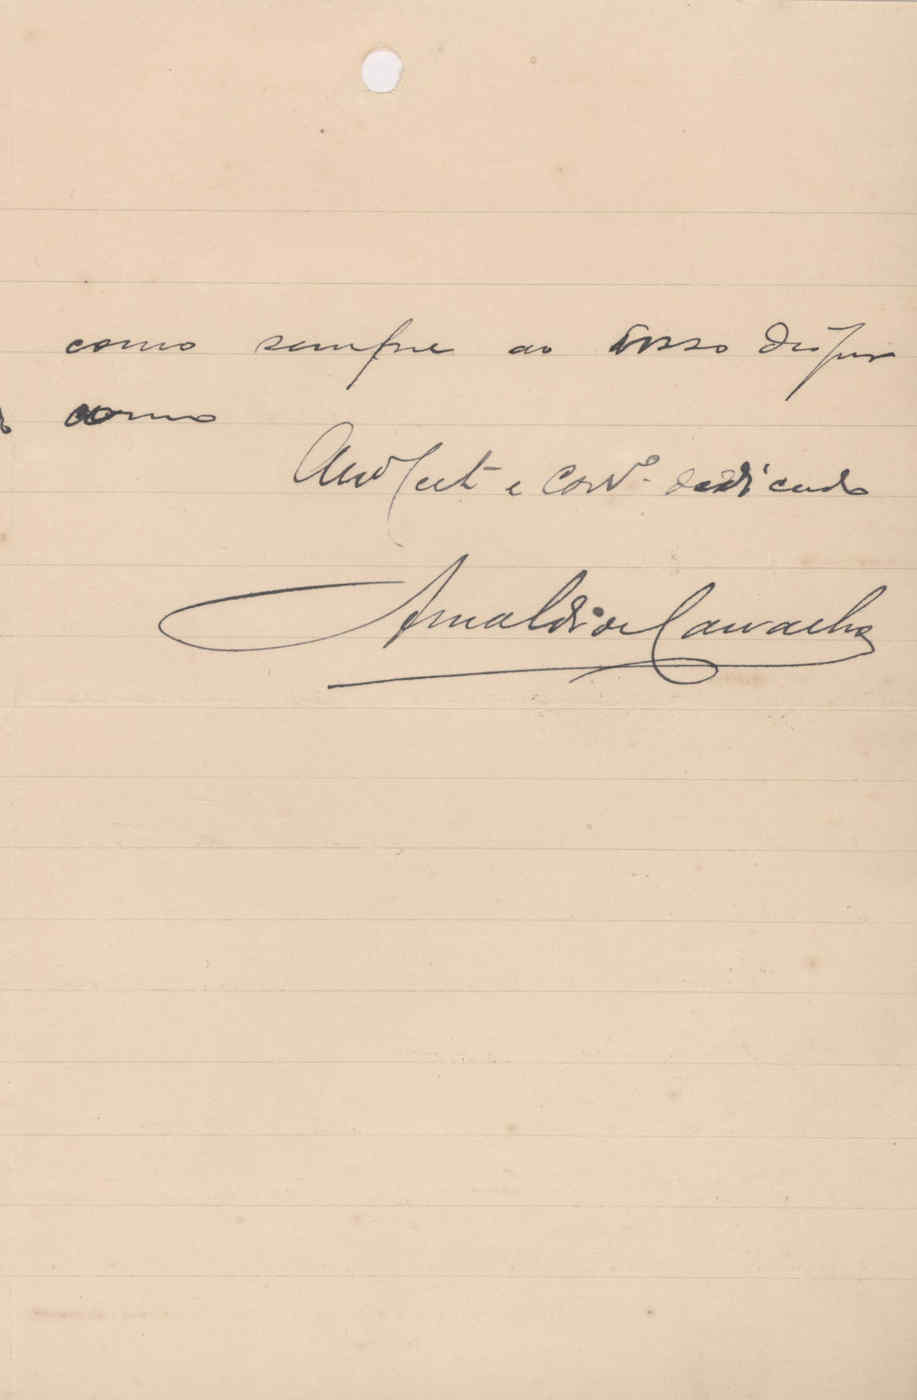 como sempre ao vosso dispor
como
Amº e Corrº dedicado
Arnaldo de Carvalho